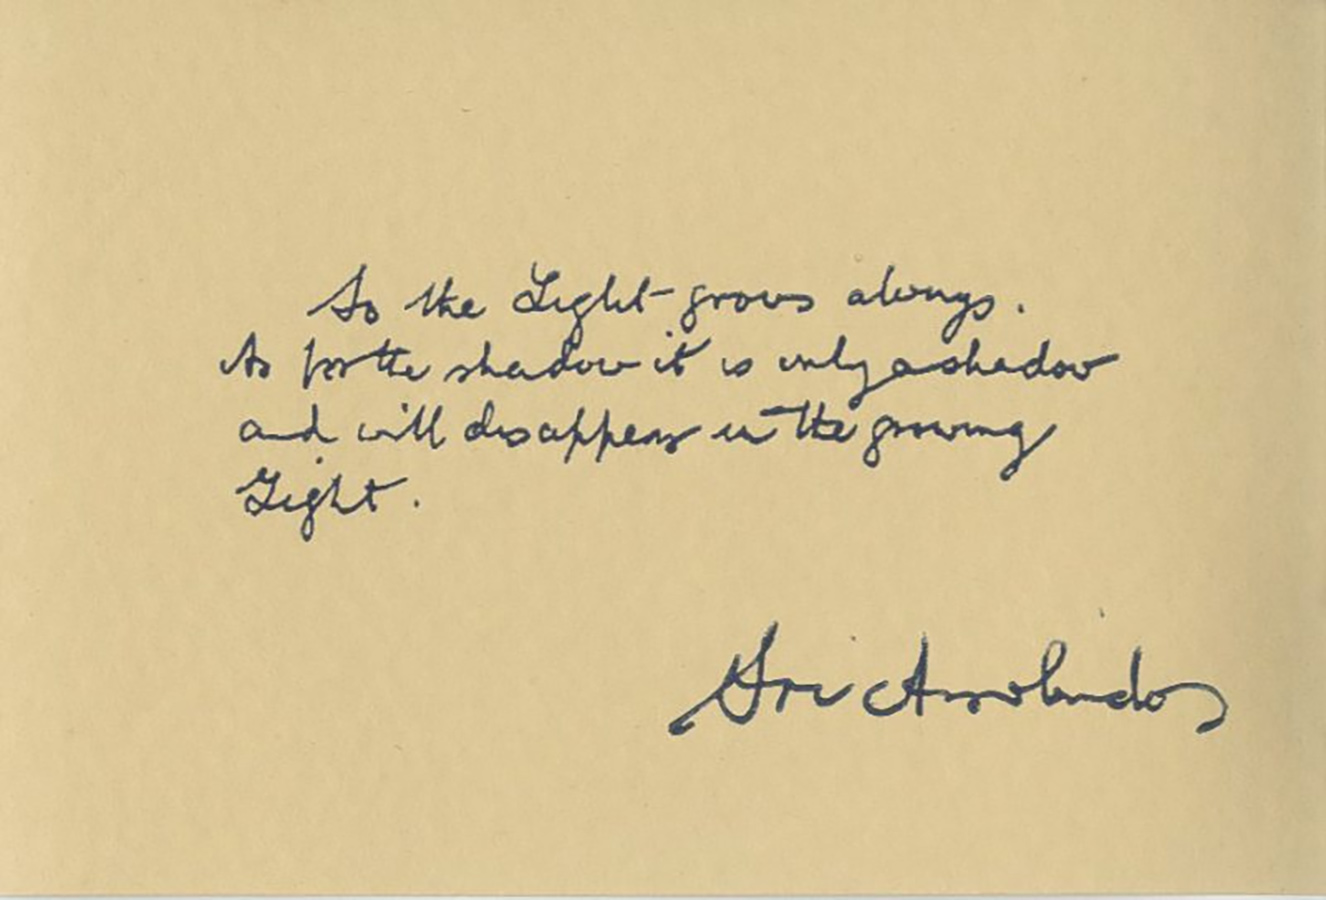 So the Light grows always.
As for the shadow it is only a shadow
and will disappear in the growing
Light.
Sri Aurobindo